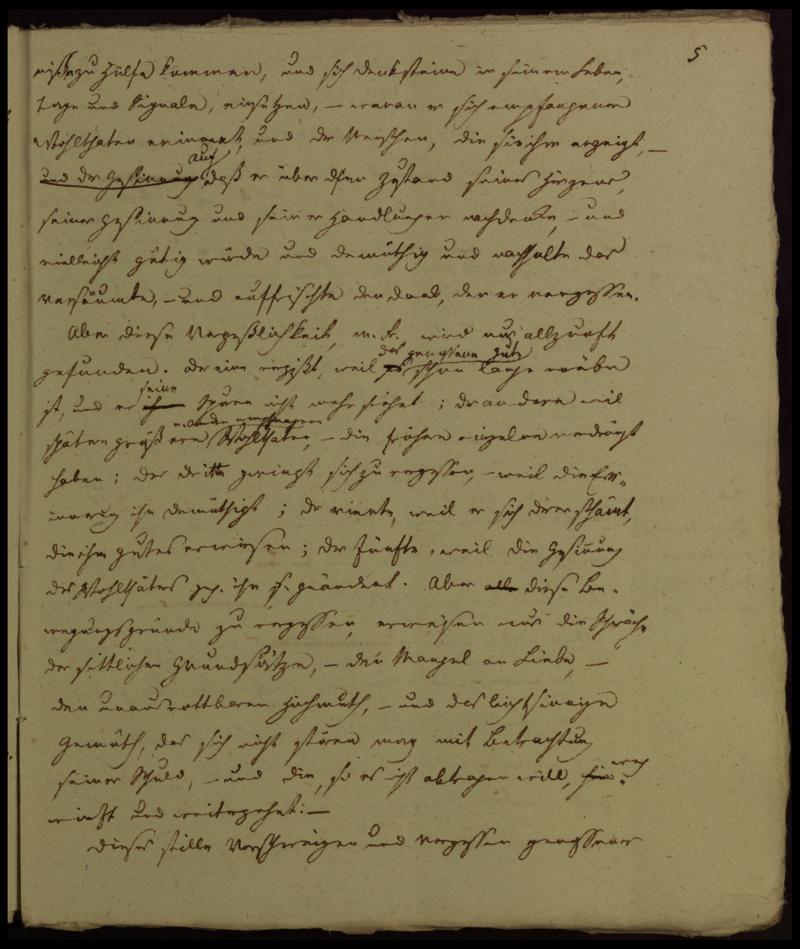 5
zu Hülfe kommen, und sich Denksteine in seinem Leben,
Tage und Signale, einsetzen, – woran er sich empfangener
Wohlthaten erinnert, und der Menschen, die sie ihm erzeigt, –
und der Gesinnung auf daß er über den Zustand seines Herzens,
seiner Gesinnung und seiner Handlungen nachdenke, – und
vielleicht gütig würde und demüthig und nachholte das
versäumte, – und auffrischte den Dank, den er vergessen.
Aber diese Vergeßlichkeit, m. Fr. wird nur allzuoft
gefunden. Der eine vergißt, weil das genossene Gute schon lange vorüber
ist, und er seine Spuren nicht mehr siehet; der andere weil
spätern größern Wohlthaten, – die frühern einzelnen verdrängt
haben; der dritte zwingt sich zu vergessen, – weil die Erin-
nerung ihn demüthigt; der vierte, weil er sich derer schämt,
die ihm gutes erwiesen; der Fünfte, weil die Gesinnung
des Wohlthäters geg. ihn s. geändert. Aber alle diese Be-
wegungsgründe zu vergessen, erweisen nur die Schwäche
der sittlichen Grundsätze, – den Mangel an Liebe, –
den unausrottbaren Hochmuth, – und das leichtsinnige
Gemüth, das sich nicht stören mag mit Betrachtung
seiner Schuld, – und die, so es nicht abtragen will,
wirft und weitergehet: –
Dieses stille Verschweigen und Vergessen genossener